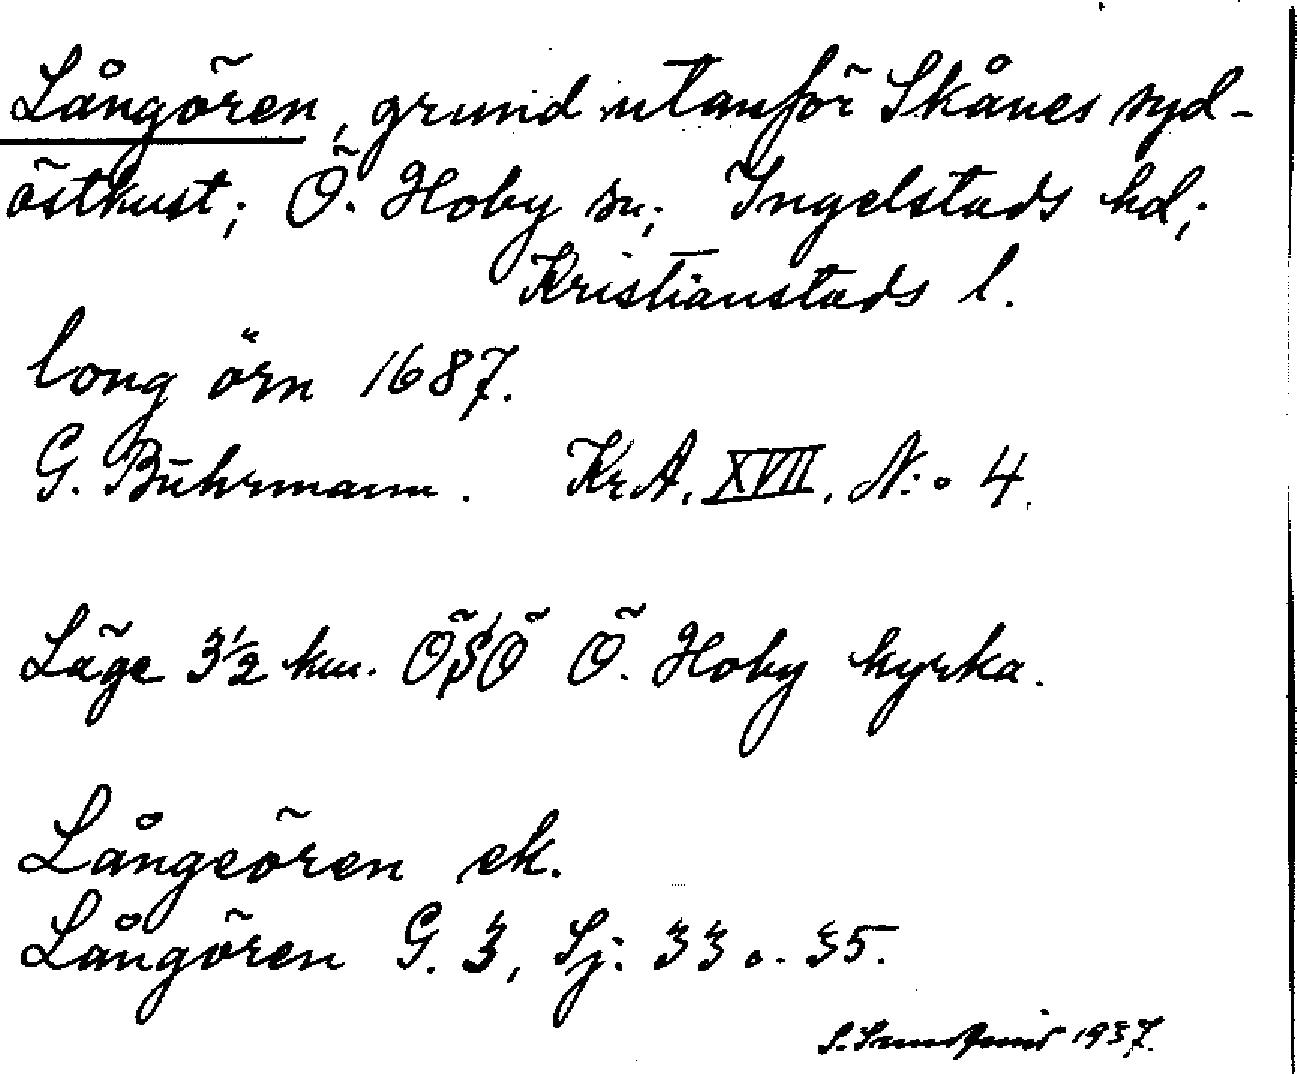 Långören, grund utanför Skånes syd-
östkust; Ö. Hoby sn; Ingelstads hd;
Kristianstads l.
long örn 1687.
G. Buhrmann. Kr.A. XVII. N:o 4.
Läge 3½ km. ÖSÖ Ö. Hoby kyrka.
Långeören ek.
Långören G. 3, Sj: 33 o. 35.
1937.